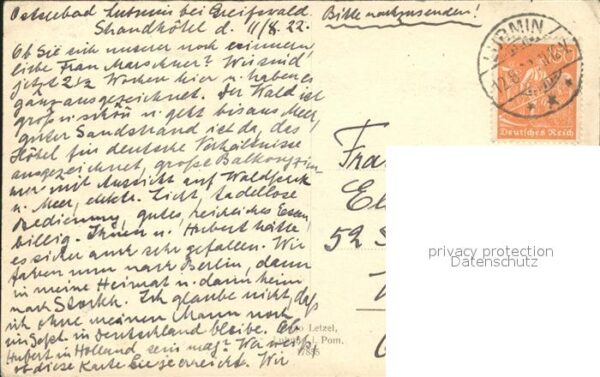 Ostseebad Lubmin bei Greifswald.
Strandhôtel d. 11/8. 22.
Bitte nachzusenden!
LUBMIN
Deutsches Reich
Ob Sie sich unserer noch erinnern,
liebe Frau Marschner? Wir sind
jetzt 2½ Wochen hier u. haben es
ganz ausgezeichnet. Der Wald ist
groß u. schön u. geht bis ans Meer,
guter Sandstrand ist da, das
Hôtel für deutsche Verhältnisse
ausgezeichnet, große Balkonzim-
mer mit Aussicht auf Waldpark
u. Meer, elektr. Licht, tadellose
Bedienung, gutes, reichliches Essen,
billig. Ihnen u. Hubert hätte
es sicher auch sehr gefallen. Wir
fahren nun nach Berlin, dann
in meine Heimat u. dann heim
nach Stockh. Ich glaube nicht, daß
ich ohne meinen Mann noch
im Sept. in Deutschland bleibe. Ob
Hubert in Holland sein mag? Wer weiß,
ob diese Karte Sie je erreicht. Wir
Fra
El
52 S
privacy protection
Datenschutz
Letzel,
i. Pom.